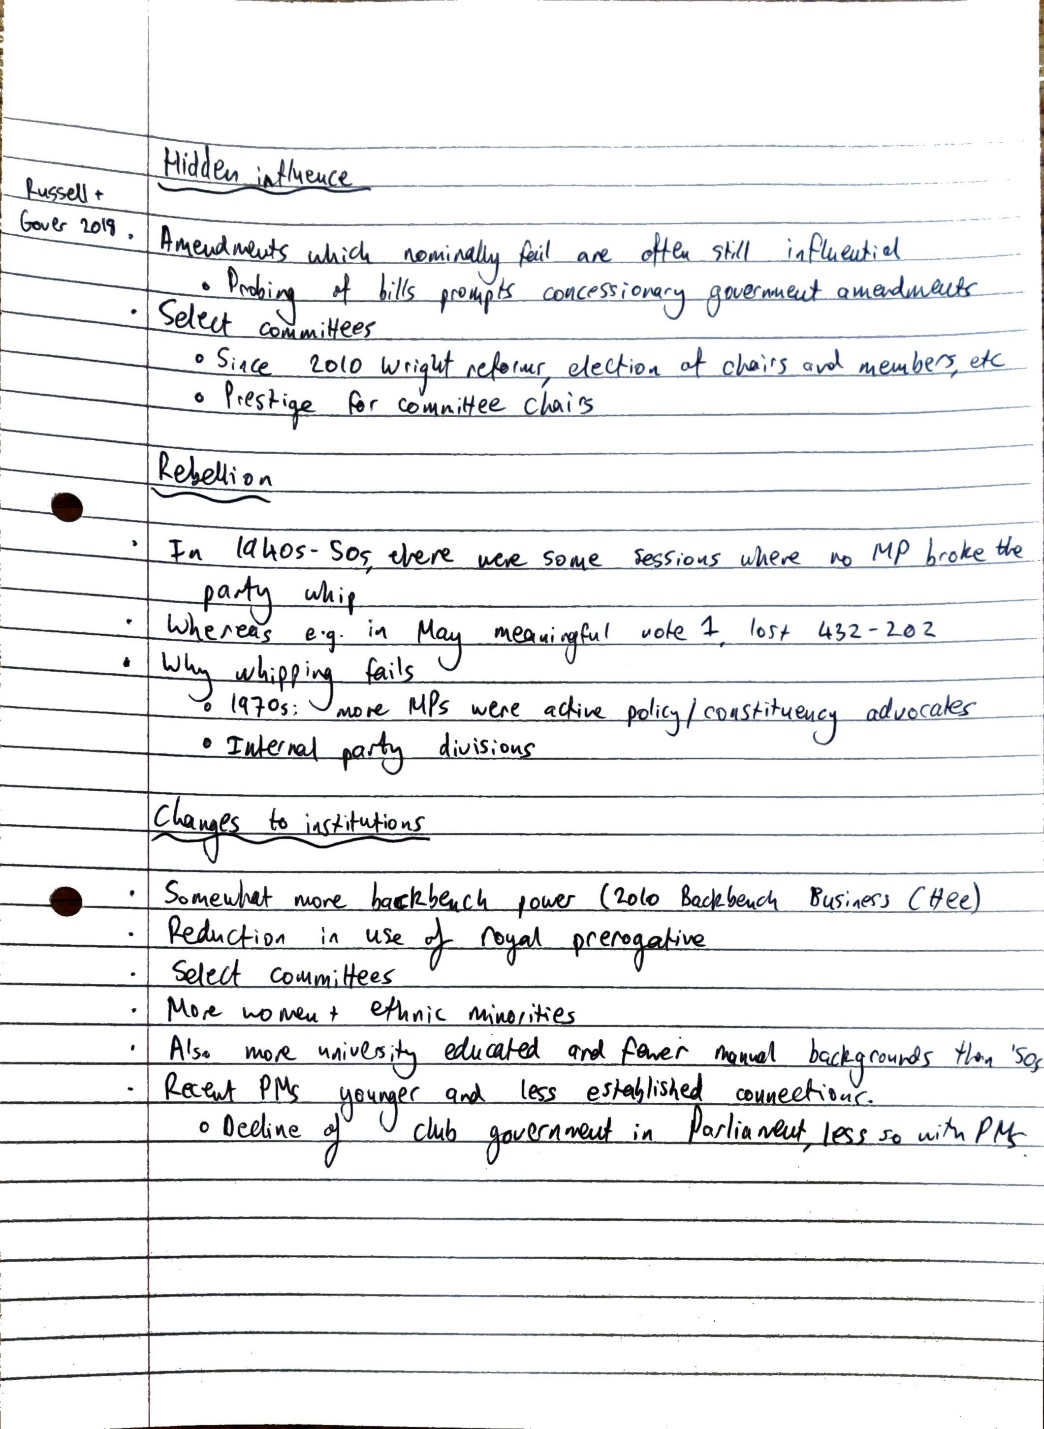 Hidden influence
Russell +
Gover 2018
· Amendments which nominally fail are often still influential
◦ Probing of bills prompts concessionary government amendments
· Select committees
◦ Since 2010 Wright reforms, election of chairs and members, etc
◦ Prestige for committee chairs
Rebellion
· In 1940s-50s, there were some sessions where no MP broke the
party whip
· Whereas e.g. in May meaningful vote 1, lost 432-202
· Why whipping fails
◦ 1970s: more MPs were active policy/constituency advocates
◦ Internal party divisions
Changes to institutions
· Somewhat more backbench power (2010 Backbench Business Cttee)
· Reduction in use of royal prerogative
· Select committees
· More women + ethnic minorities
· Also more university educated and fewer manual backgrounds than '50s
· Recent PMs younger and less established connections.
◦ Decline of club government in Parliament, less so with PMs